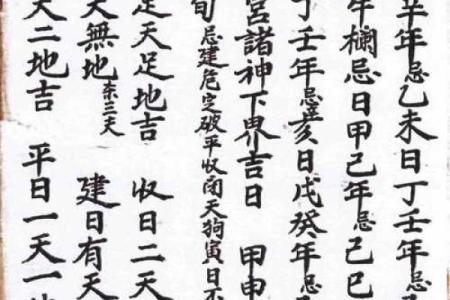 辛年忌乙未日丁壬年忌
牛欄忌日甲己年忌己巳
丁壬年忌辛亥日戊癸年忌
宮諸神下界吉日 甲申
旬忌建危定破平收閉天狗寅日不
天足地吉 收日二天
天無地东三天 建日有天
天二地吉 平日一天一